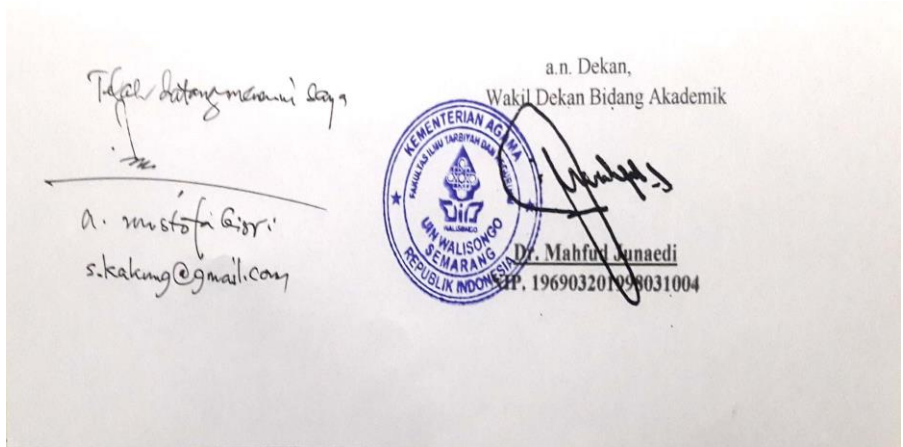 Telah datang menemui saya
a. mustofa Bisri
s.kakung@gmail.com
a.n. Dekan,
Wakil Dekan Bidang Akademik
KEMENTERIAN AGAMA
FAKULTAS ILMU TARBIYAH DAN
UIN
WALISONGO
UIN WALISONGO
SEMARANG
REPUBLIK INDONESIA
Dr. Mahfud Junaedi
NIP. 196903201998031004